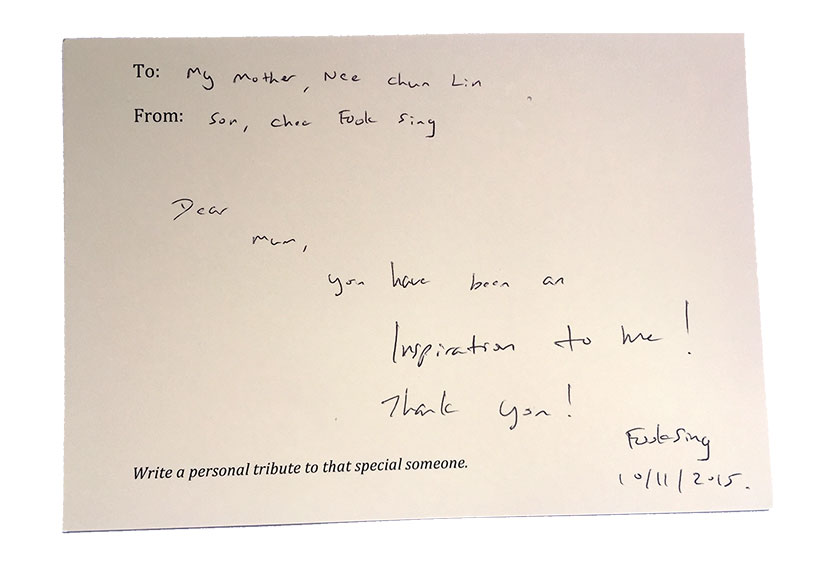 To: My mother, Nee Chun Lin
From: Son, Choc Fook Sing
Dear
Mum,
you have been an
Inspiration to me!
Thank you!
Fook Sing
10/11/2015.
Write a personal tribute to that special someone.